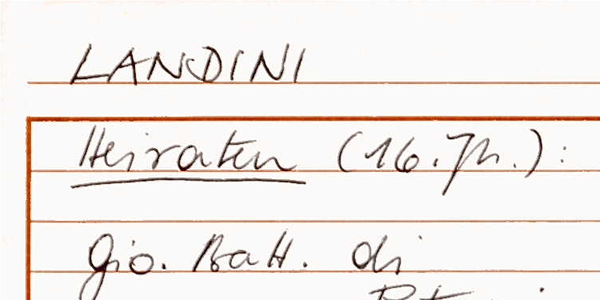 LANDINI
Heiraten (16. Jh.):
Gio. Batt. di